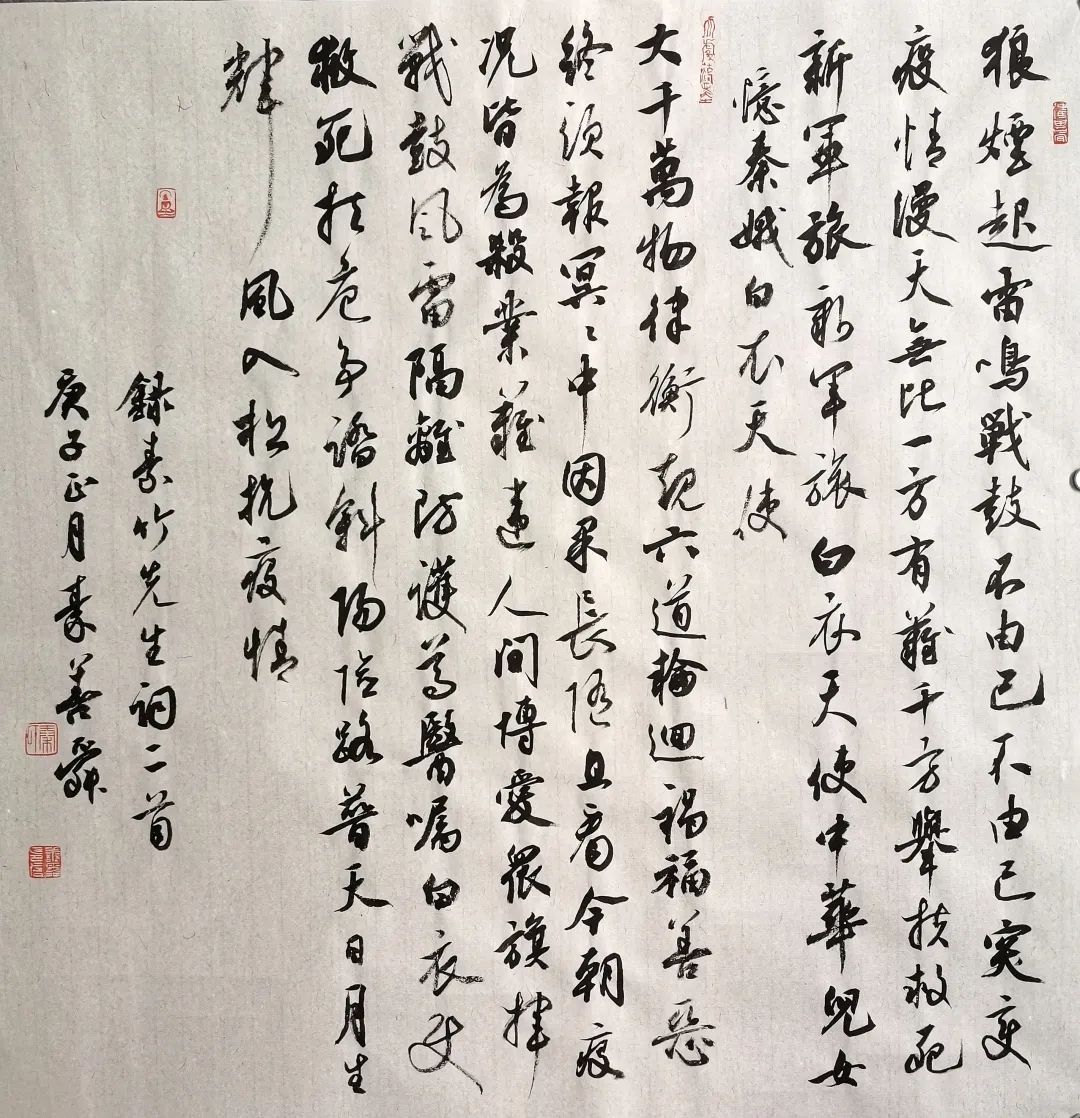 狼煙起雷鳴戰鼓不由己不由己突变
疫情漫天無比一方有難千方舉扶救死
新軍旅新軍旅白衣天使中華兒女
憶秦娥白衣天使
大千萬物律衡規六道輪迴禍福善惡
終須報冥〻中因果長隨且看今朝疫
况皆為殺業難違人间博愛眾旗揮
戰鼓风雷隔離防護尊醫嘱白衣使
救死扶危多踏斜陽险路普天日月生
輝
風入松抗疫情
錄素竹先生词二首
庚子正月豪善舜